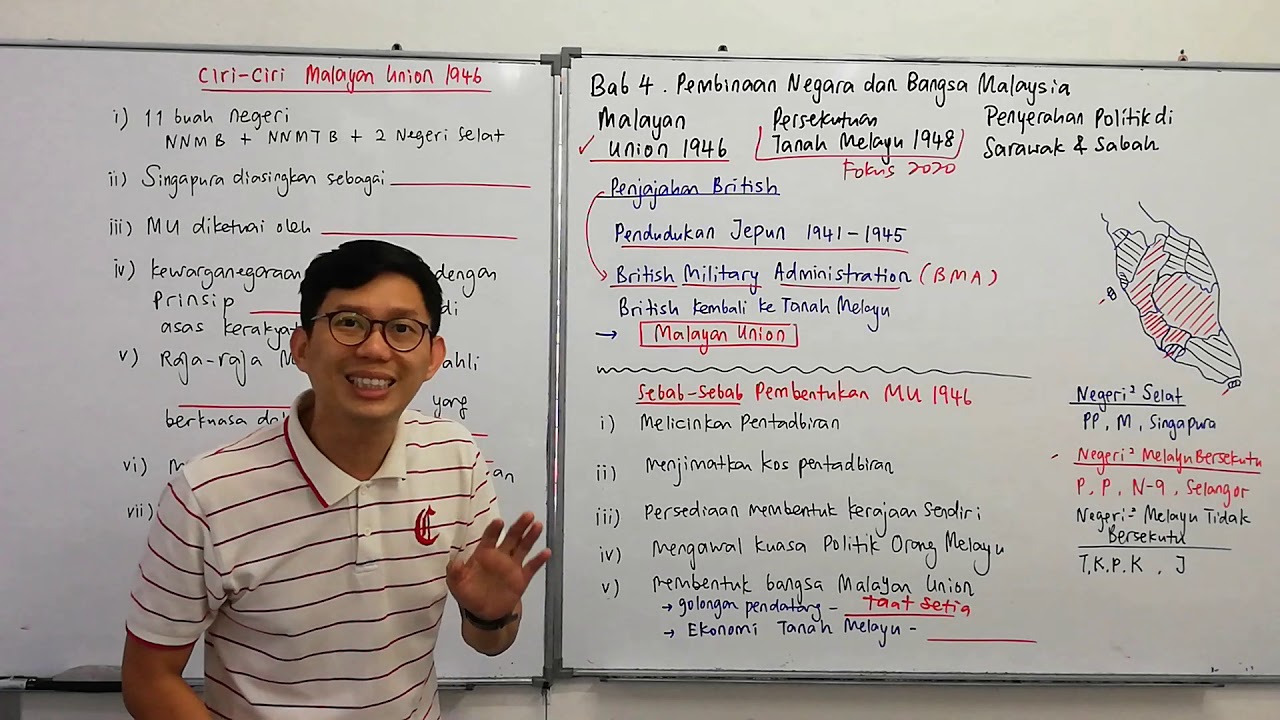 Ciri-Ciri Malayan Union 1946
i) 11 buah negeri
NNMB + NNMTB + 2 Negeri Selat
ii) Singapura diasingkan sebagai
iii) MU diketuai oleh
iv) Kewarganegaraan dengan
Prinsip di
asas kerakyat
v) Raja-raja M ahli
yang
berkuasa da
vi) M an
vii)
C
Bab 4 . Pembinaan Negara dan Bangsa Malaysia
Malayan
Union 1946
Persekutuan
Tanah Melayu 1948
Fokus 2020
Penyerahan Politik di
Sarawak & Sabah
Penjajahan British
Pendudukan Jepun 1941-1945
British Military Administration (BMA)
British kembali ke Tanah Melayu
→ Malayan Union
Sebab-Sebab Pembentukan MU 1946
i) Melicinkan Pentadbiran
ii) Menjimatkan kos pentadbiran
iii) Persediaan membentuk kerajaan Sendiri
iv) Mengawal kuasa Politik Orang Melayu
v) Membentuk bangsa Malayan Union
→ golongan pendatang - taat setia
→ Ekonomi Tanah Melayu -
Negeri² Selat
PP, M, Singapura
Negeri² Melayu Bersekutu
P, P, N-9, Selangor
Negeri² Melayu Tidak
Bersekutu
T, K, P, K, J